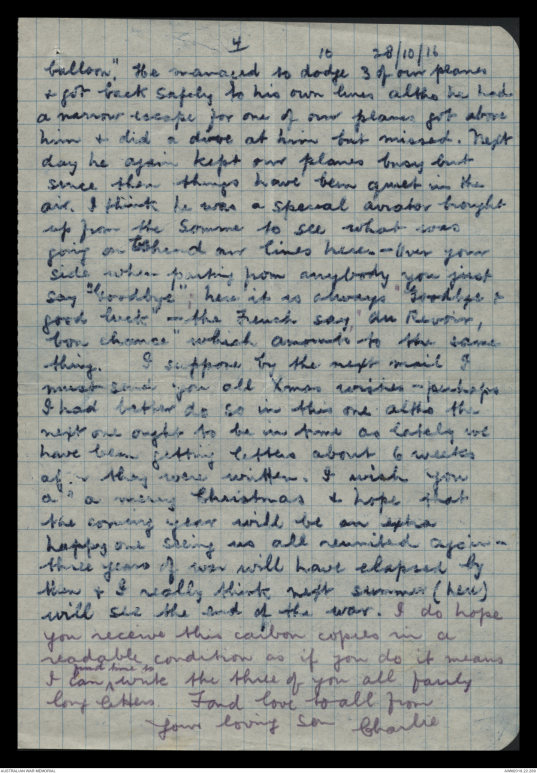 4
10 28/10/16
balloon". He managed to dodge 3 of our planes
& got back safely to his own lines altho he had
a narrow escape for one of our planes got above
him & did a dive at him but missed. Next
day he again kept our planes busy but
since then things have been quiet in the
air. I think he was a special aviator brought
up from the Somme to see what was
going on behind our lines here. - Over your
side when parting from anybody you just
say "Goodbye"; here it is always "Goodbye &
good luck" - the French say "Au Revoir,
bon chance" which amounts to the same
thing. I suppose by the next mail I
must send you all Xmas wishes - perhaps
I had better do so in this one altho the
next one ought to be in time as lately we
have been getting letters about 6 weeks
after they were written. I wish you
a merry Christmas & hope that
the coming year will be an extra
happy one seeing us all reunited again -
three years of war will have elapsed by
then & I really think next summer (here)
will see the end of the war. I do hope
you receive this carbon copies in a
readable condition as if you do it means
I can find time to write the three of you all fairly
long letters. Fond love to all from
Your loving son Charlie
AUSTRALIAN WAR MEMORIAL